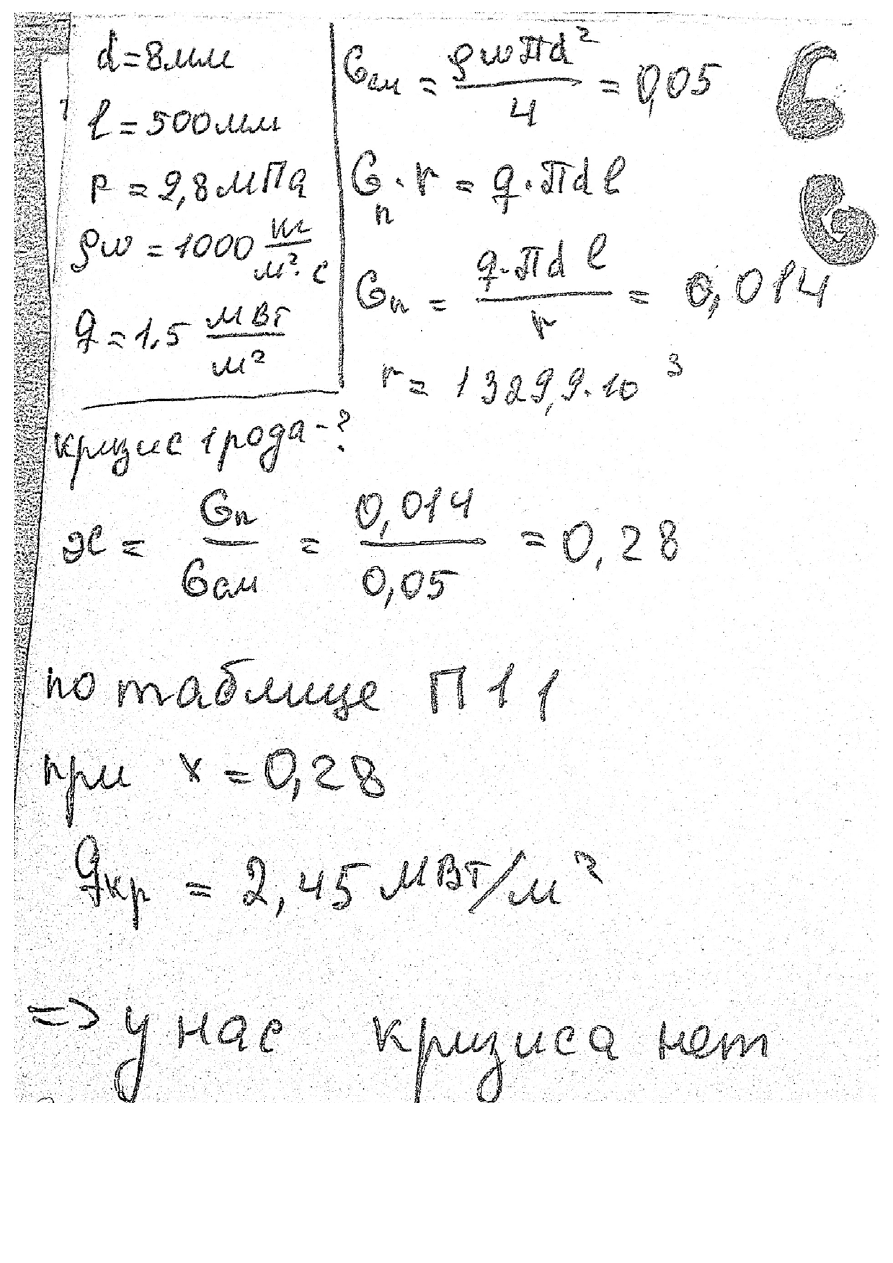 d=8мм
l=500мм
P=9,8МПа
ρw=1000 кг/м²·с
q=1.5 МВт/м²
кризис 1 рода-?
Gсм = ρwπd²/4 = 0,05
Gп·r = q·πdl
Gп = q·πdl/r = 0,014
r = 1329,9·10³
x = Gп/Gсм = 0,014/0,05 = 0,28
по таблице П11
при x=0,28
qкр = 2,45 МВт/м²
=> у нас кризиса нет